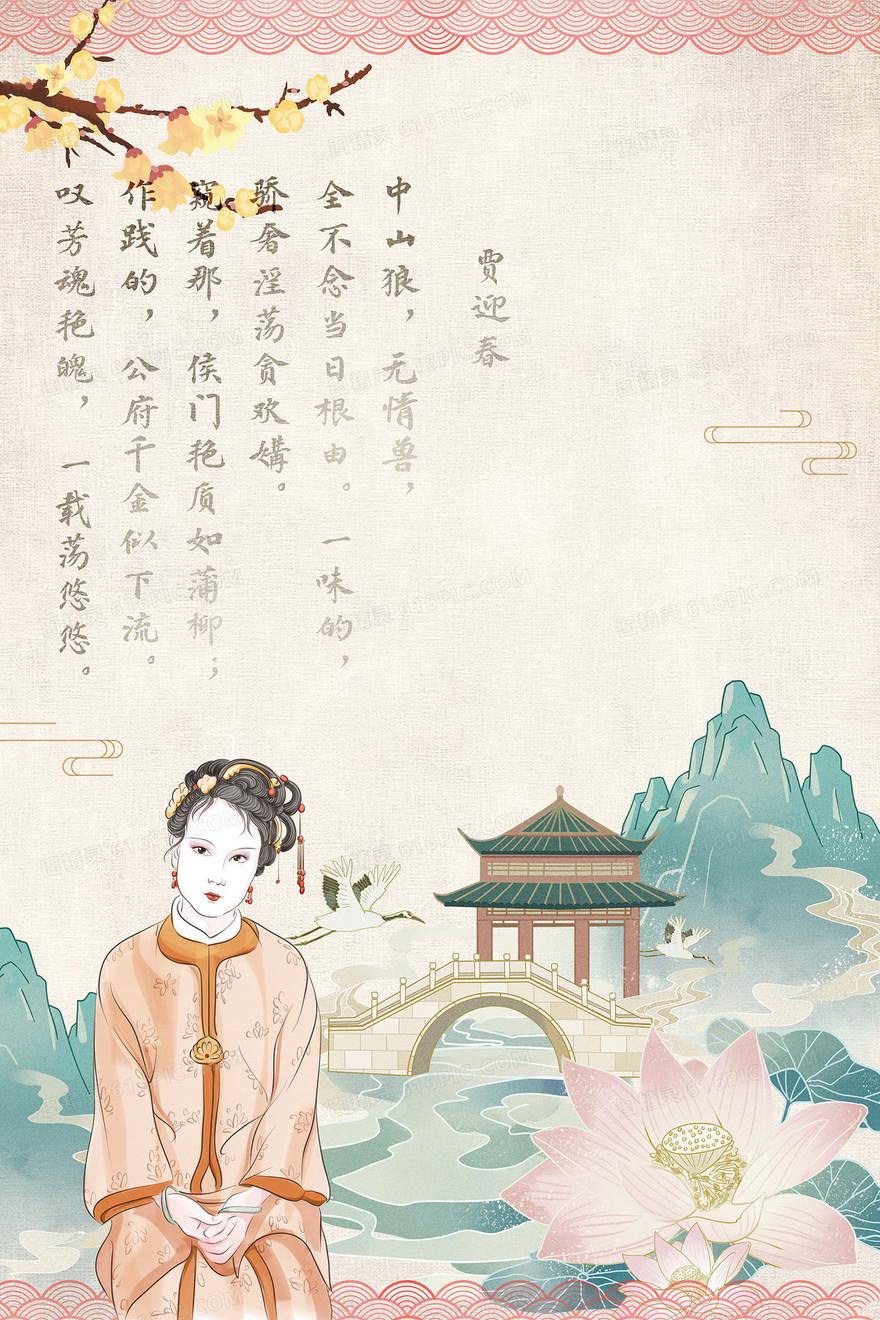 贾迎春
中山狼，无情兽，
全不念当日根由。一味的，
骄奢淫荡贪欢媾。
窥着那，侯门艳质如蒲柳；
作践的，公府千金似下流。
叹芳魂艳魄，一载荡悠悠。